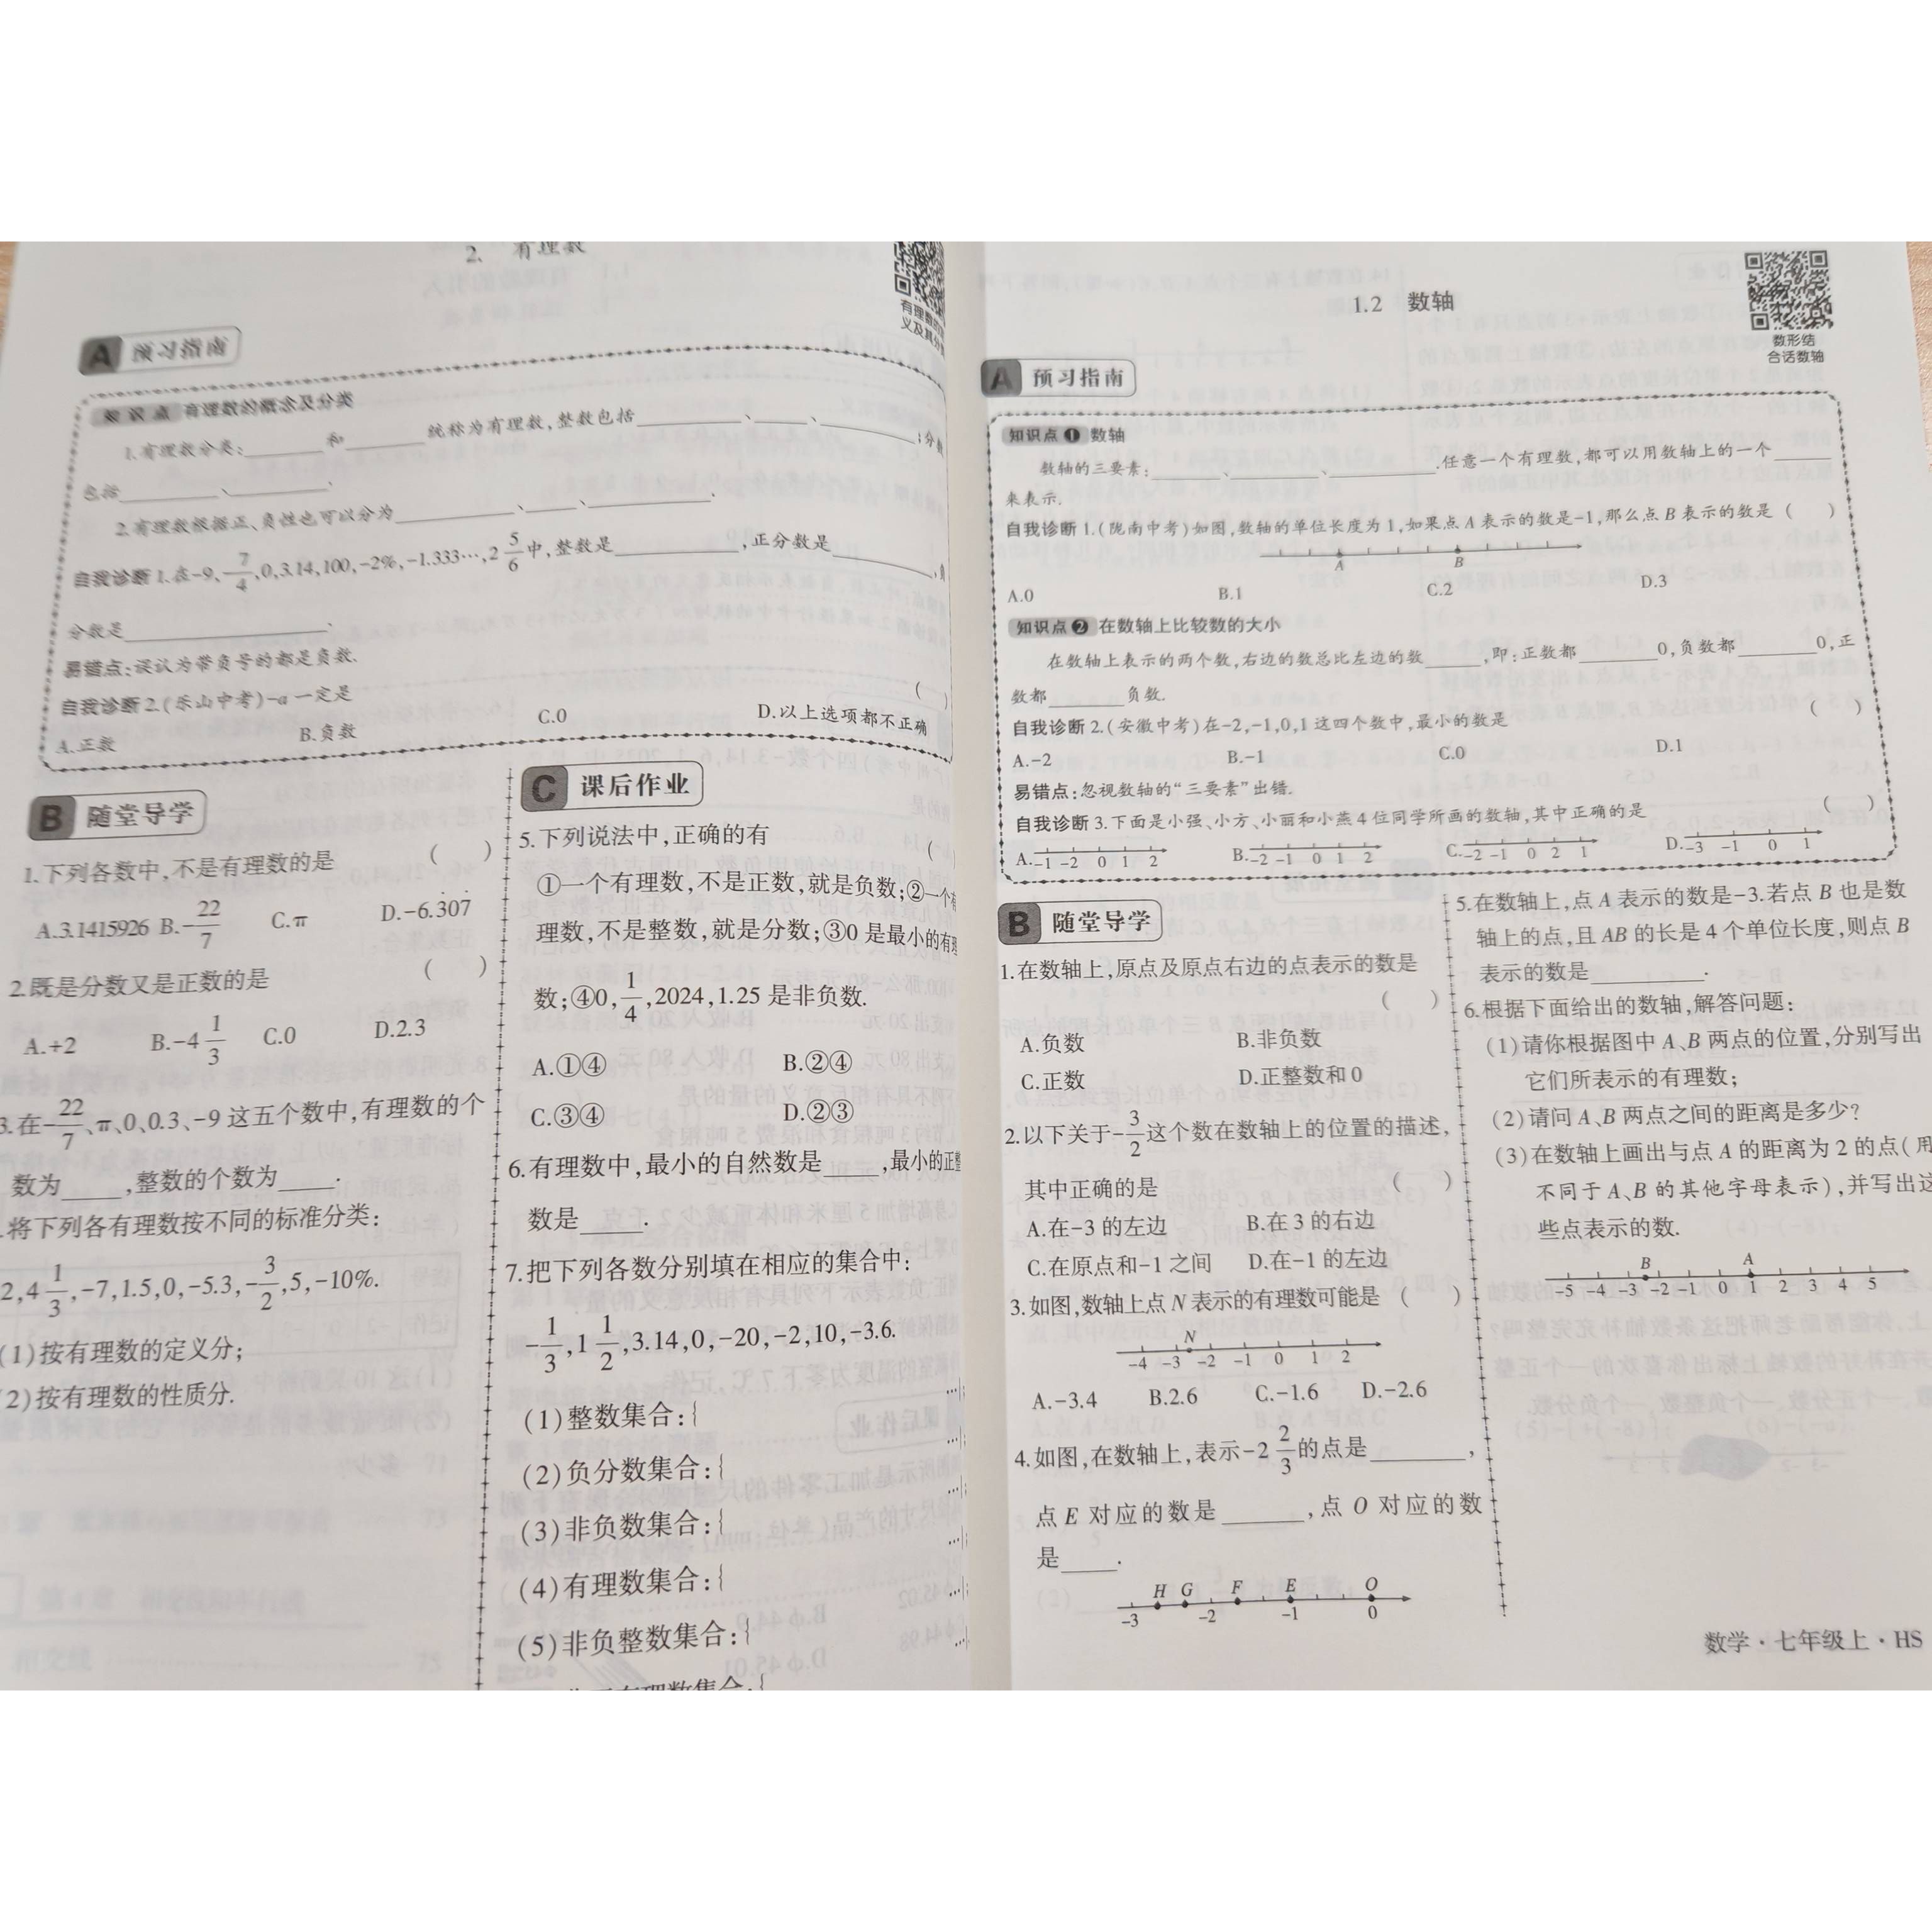 2. 有理数
有理数的
义及其分
A 预习指南
知识点 有理数的概念及分类
1.有理数分类:______和______统称为有理数,整数包括______、______、______;分数
包括______、______.
2.有理数根据正、负性也可以分为______、______、______.
自我诊断1.在-9,-7/4,0,3.14,100,-2%,-1.333…,2 5/6中,整数是______,正分数是______,负
分数是______.
易错点:误认为带负号的都是负数.
自我诊断2.(乐山中考)-a一定是 ( )
A.正数 B.负数 C.0 D.以上选项都不正确
B 随堂导学
1.下列各数中,不是有理数的是 ( )
A.3.1415926 B.-22/7 C.π D.-6.3̇07̇
2.既是分数又是正数的是 ( )
A.+2 B.-4 1/3 C.0 D.2.3
3.在-22/7、π、0、0.3、-9这五个数中,有理数的个
数为____,整数的个数为____.
.将下列各有理数按不同的标准分类:
2,4 1/3,-7,1.5,0,-5.3,-3/2,5,-10%.
(1)按有理数的定义分;
(2)按有理数的性质分.
C 课后作业
5.下列说法中,正确的有 (
①一个有理数,不是正数,就是负数;②一个有
理数,不是整数,就是分数;③0是最小的有理
数;④0,1/4,2024,1.25是非负数.
A.①④ B.②④
C.③④ D.②③
6.有理数中,最小的自然数是____,最小的正整
数是____.
7.把下列各数分别填在相应的集合中:
-1/3,1 1/2,3.14,0,-20,-2,10,-3.6.
(1)整数集合:{
(2)负分数集合:{
(3)非负数集合:{
(4)有理数集合:{
(5)非负整数集合:{
有理数集合:{
1.2 数轴
数形结
合话数轴
A 预习指南
知识点❶ 数轴
数轴的三要素:______、______、______.任意一个有理数,都可以用数轴上的一个______
来表示.
自我诊断1.(陇南中考)如图,数轴的单位长度为1,如果点A表示的数是-1,那么点B表示的数是 ( )
A B
A.0 B.1 C.2 D.3
知识点❷ 在数轴上比较数的大小
在数轴上表示的两个数,右边的数总比左边的数______,即:正数都______0,负数都______0,正
数都______负数.
自我诊断2.(安徽中考)在-2,-1,0,1这四个数中,最小的数是 ( )
A.-2 B.-1 C.0 D.1
易错点:忽视数轴的“三要素”出错.
自我诊断3.下面是小强、小方、小丽和小燕4位同学所画的数轴,其中正确的是 ( )
A. -1 -2 0 1 2 B. -2 -1 0 1 2 C. -2 -1 0 2 1 D. -3 -1 0 1
B 随堂导学
1.在数轴上,原点及原点右边的点表示的数是
( )
A.负数 B.非负数
C.正数 D.正整数和0
2.以下关于-3/2这个数在数轴上的位置的描述,
其中正确的是 ( )
A.在-3的左边 B.在3的右边
C.在原点和-1之间 D.在-1的左边
3.如图,数轴上点N表示的有理数可能是 ( )
N
-4 -3 -2 -1 0 1 2
A.-3.4 B.2.6 C.-1.6 D.-2.6
4.如图,在数轴上,表示-2 2/3的点是______,
点E对应的数是______,点O对应的数
是____.
H G F E O
-3 -2 -1 0
5.在数轴上,点A表示的数是-3.若点B也是数
轴上的点,且AB的长是4个单位长度,则点B
表示的数是______.
6.根据下面给出的数轴,解答问题:
(1)请你根据图中A、B两点的位置,分别写出
它们所表示的有理数;
(2)请问A、B两点之间的距离是多少?
(3)在数轴上画出与点A的距离为2的点(用
不同于A、B的其他字母表示),并写出这
些点表示的数.
B A
-5 -4 -3 -2 -1 0 1 2 3 4 5
数学·七年级上·HS